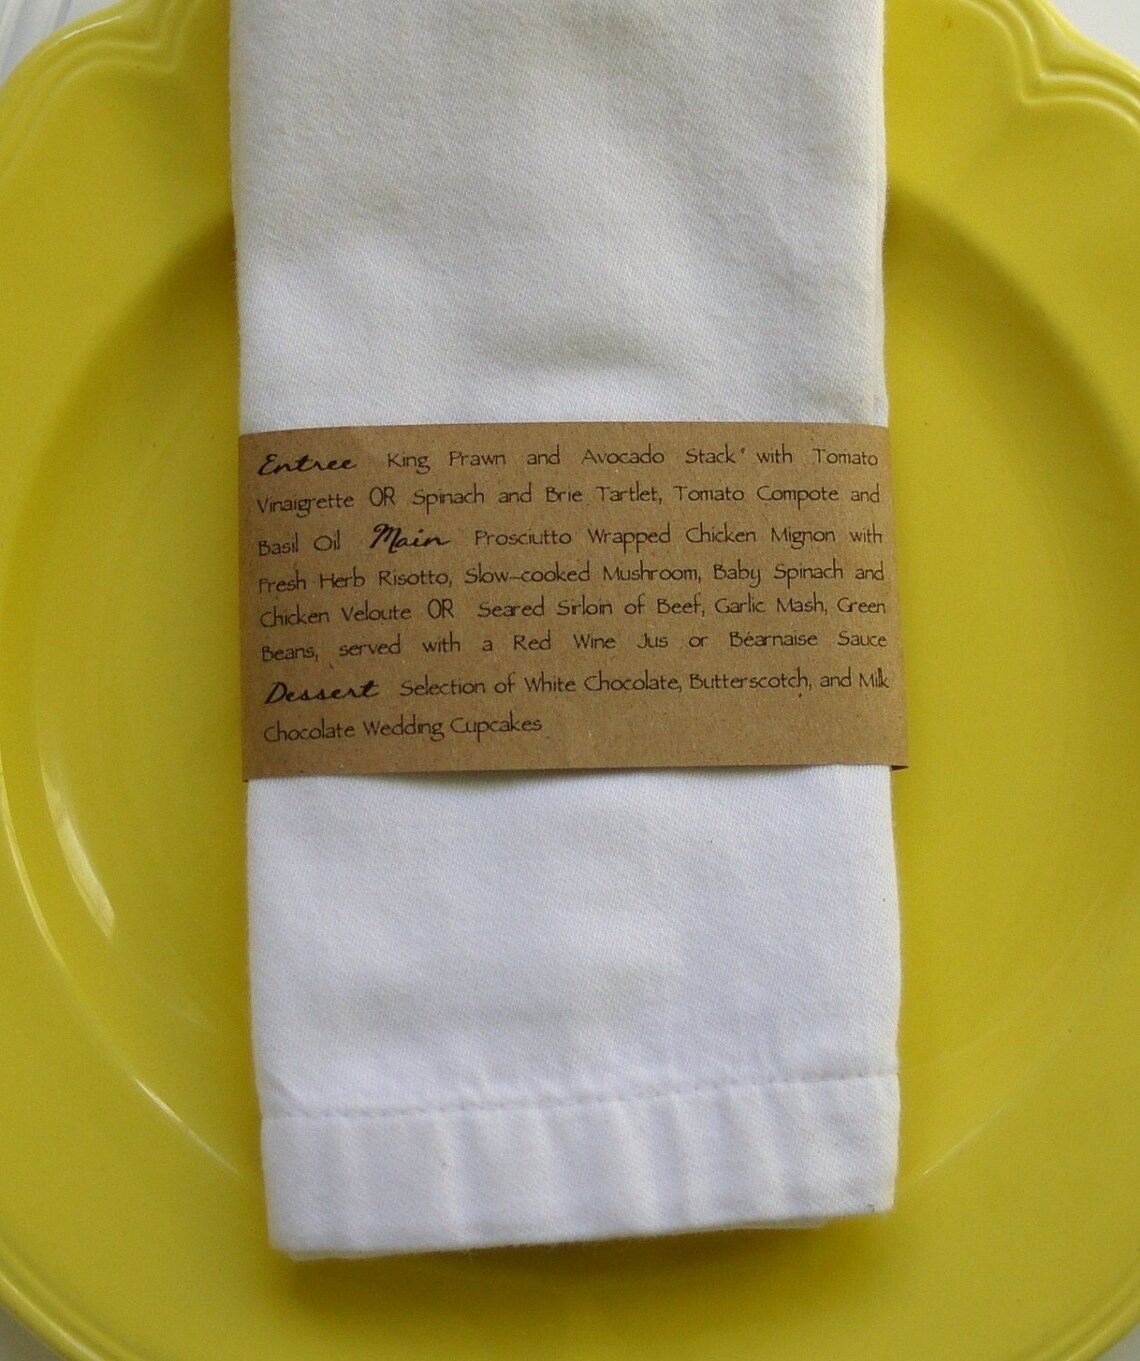 Entree King Prawn and Avocado Stack' with Tomato
Vinaigrette OR Spinach and Brie Tartlet, Tomato Compote and
Basil Oil Main Prosciutto Wrapped Chicken Mignon with
Fresh Herb Risotto, Slow-cooked Mushroom, Baby Spinach and
Chicken Veloute OR Seared Sirloin of Beef, Garlic Mash, Green
Beans, served with a Red Wine Jus or Béarnaise Sauce
Dessert Selection of White Chocolate, Butterscotch, and Milk
Chocolate Wedding Cupcakes